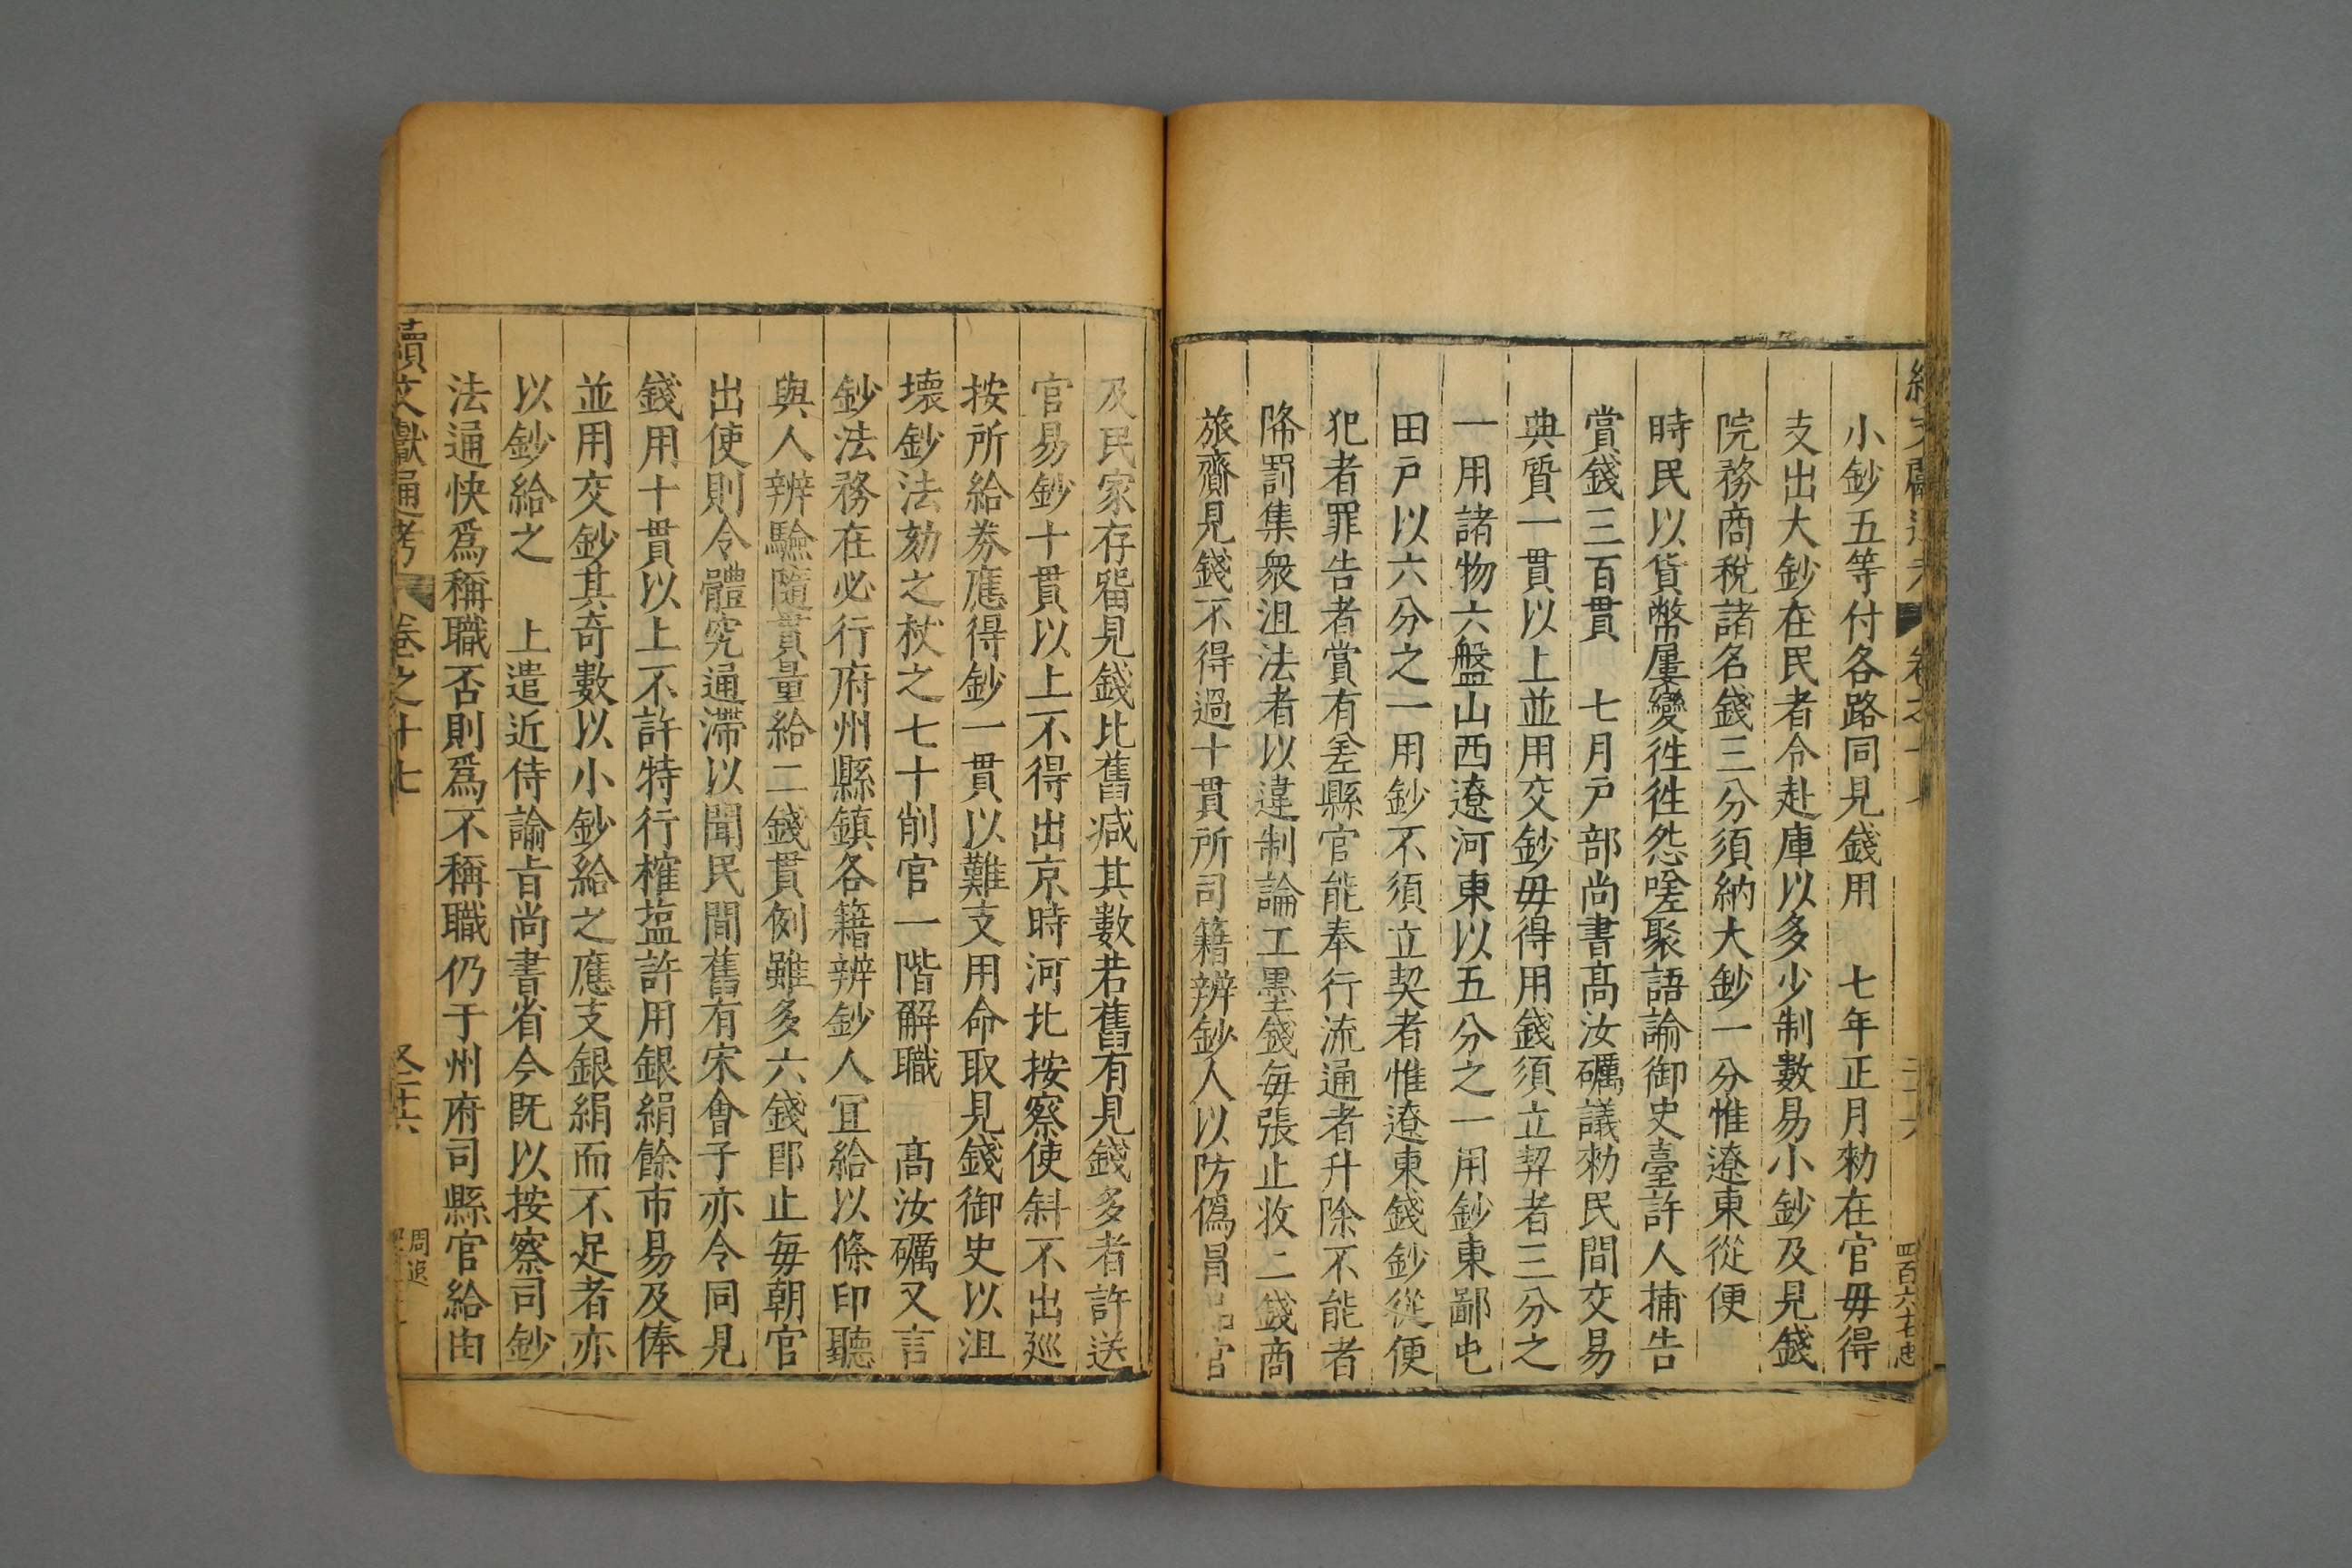 小鈔五等付各路同見錢用　七年正月勑在官毋得
支出大鈔在民者令赴庫以多少制數易小鈔及見錢
院務商稅諸名錢三分須納大鈔一分惟遼東從便
時民以貨幣屢變徃徃怨嗟聚語諭御史臺許人捕告
賞錢三百貫　七月戸部尚書髙汝礪議勑民間交易
典質一貫以上並用交鈔毋得用錢須立契者三分之
一用諸物六盤山西遼河東以五分之一用鈔東鄙屯
田戸以六分之一用鈔不須立契者惟遼東錢鈔從便
犯者罪告者賞有差縣官能奉行流通者升除不能者
降罰集衆沮法者以違制論工墨錢每張止收二錢商
旅齎見錢不得過十貫所司籍辨鈔人以防僞冒品官
及民家存畱見錢比舊减其數若舊有見錢多者許送
官易鈔十貫以上不得出京時河北按察使斜不出廵
按所給劵應得鈔一貫以難支用命取見錢御史以沮
壞鈔法劾之杖之七十削官一階解職　髙汝礪又言
鈔法務在必行府州縣鎮各籍辨鈔人冝給以條印聽
與人辨驗隨貫量給二錢貫例雖多六錢卽止每朝官
出使則令體究通滯以聞民間舊有宋會子亦令同見
錢用十貫以上不許特行榷盐許用銀絹餘市易及俸
並用交鈔其奇數以小鈔給之應支銀絹而不足者亦
以鈔給之　上遣近侍諭旨尚書省今旣以按察司鈔
法通快爲稱職否則爲不稱職仍于州府司縣官給由
續文獻通考　卷之十七
周追